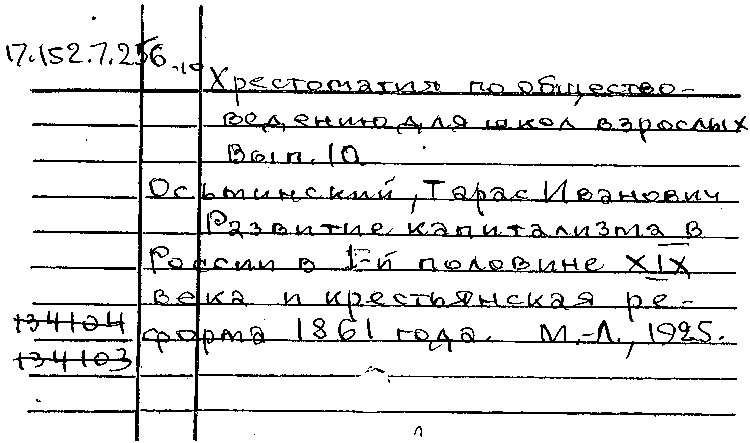 17.152.7.256-10
Хрестоматия по общество-
ведению для школ взрослых
Вып. 10
Осьминский, Тарас Иванович
Развитие капитализма в
России в I-й половине XIX
века и крестьянская ре-
134104 форма 1861 года. М.-Л., 1925.
134103